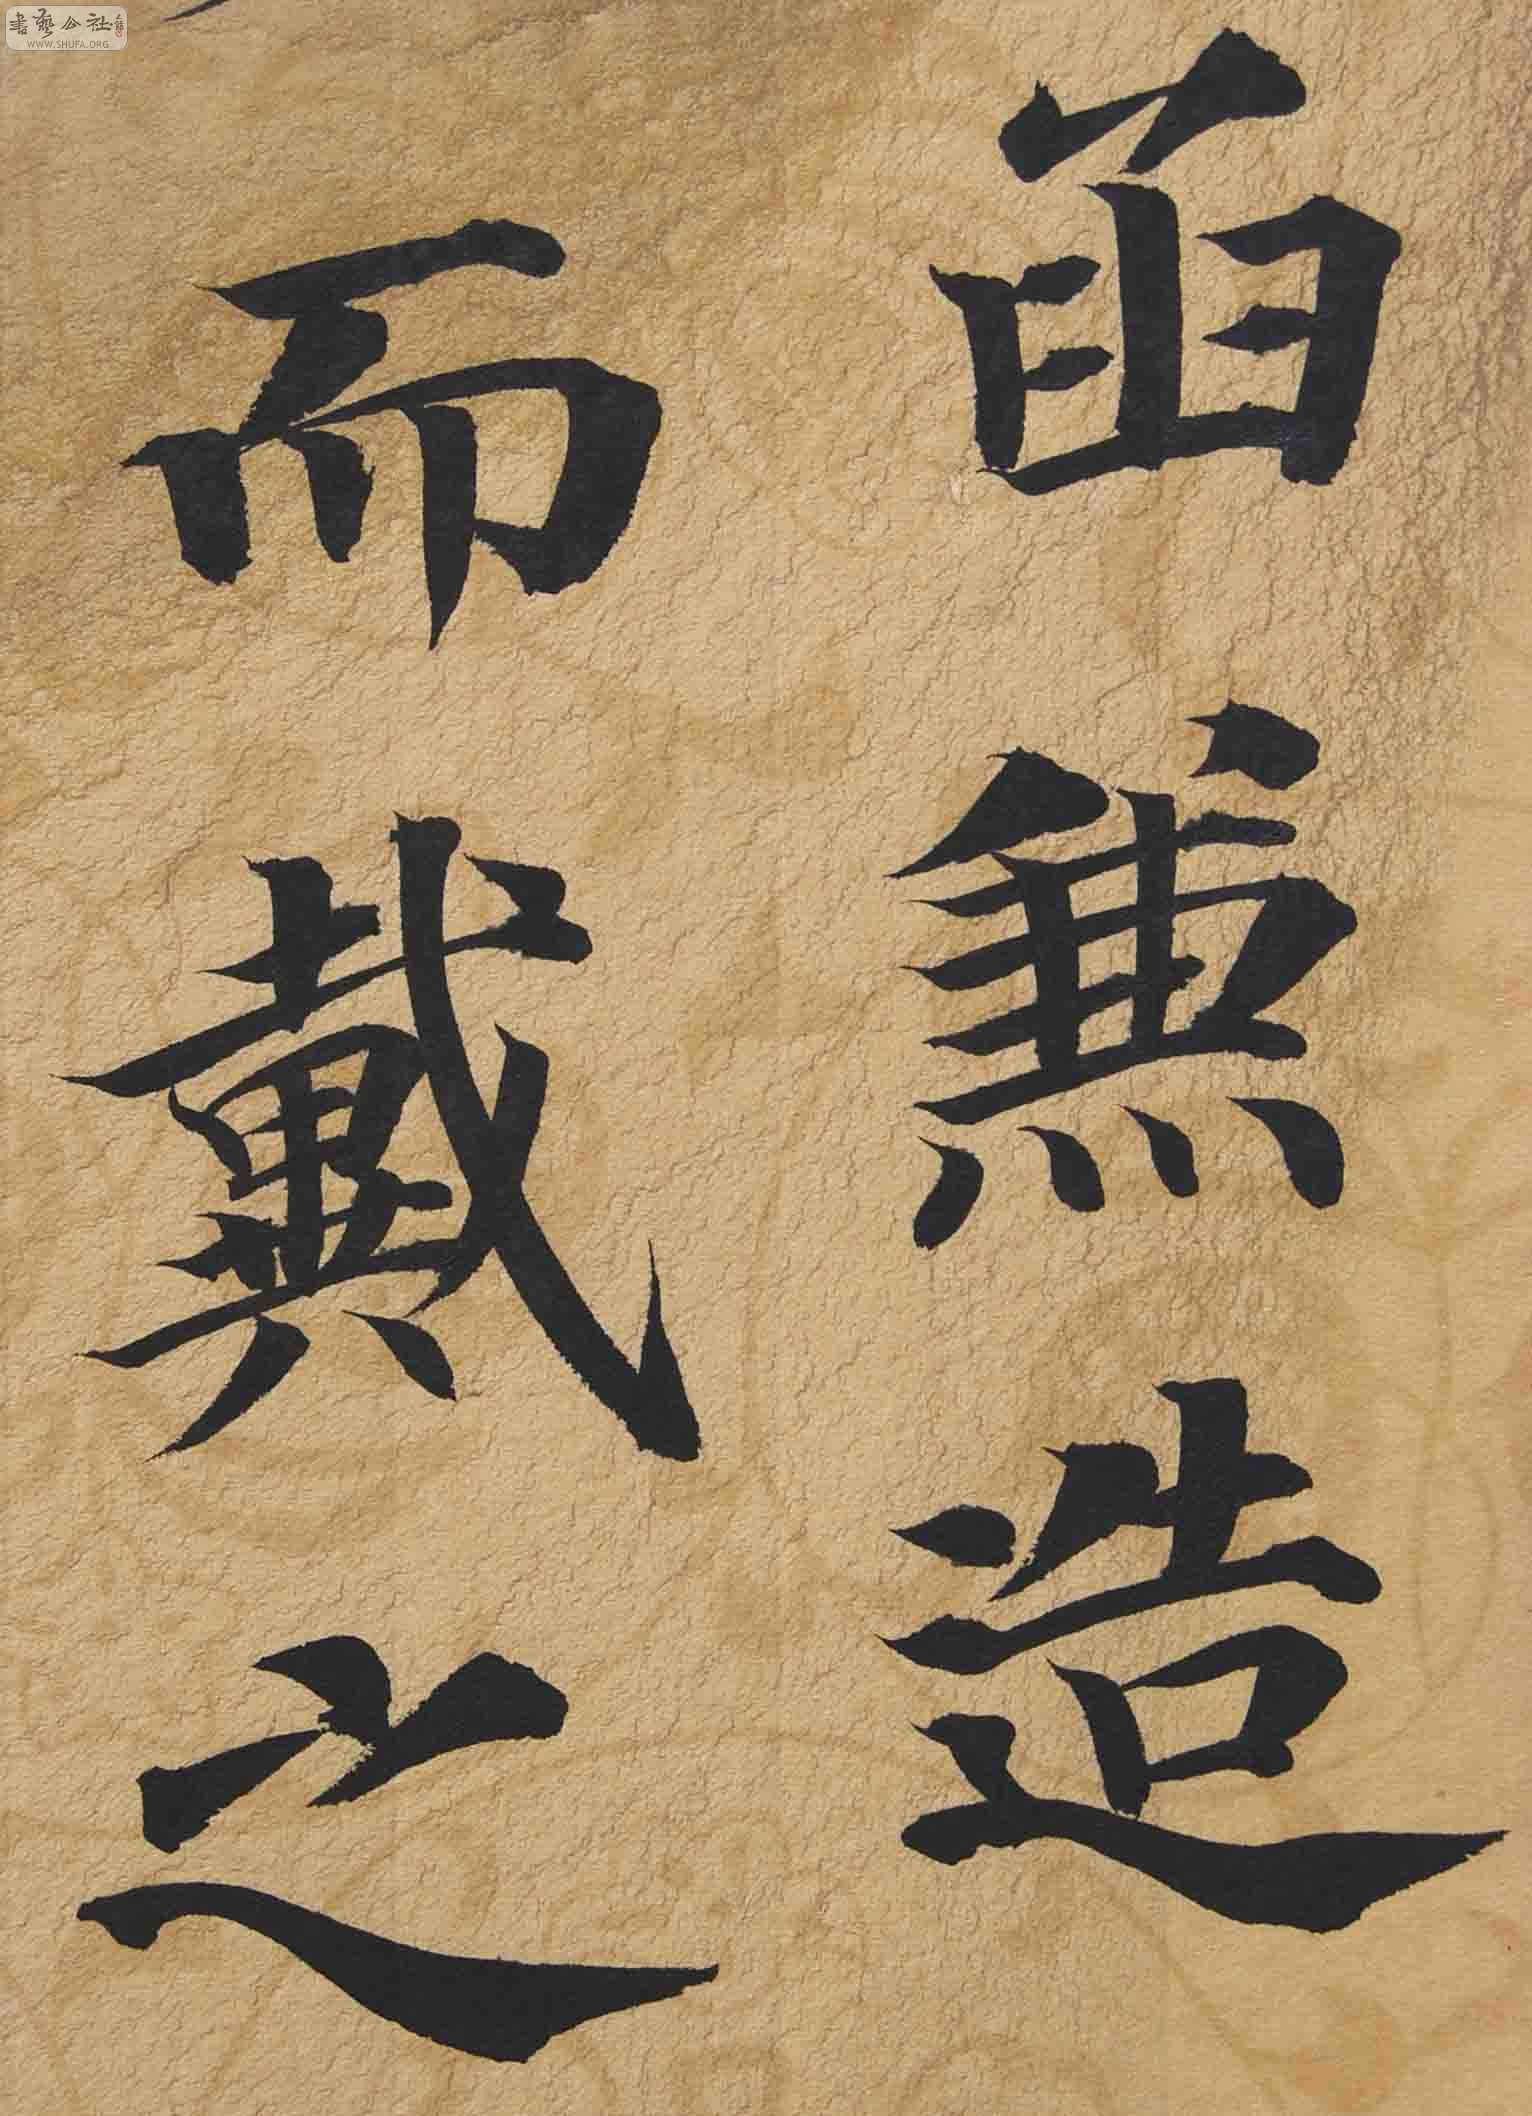 函兼造
而戴之
書藝公社
WWW.SHUFA.ORG